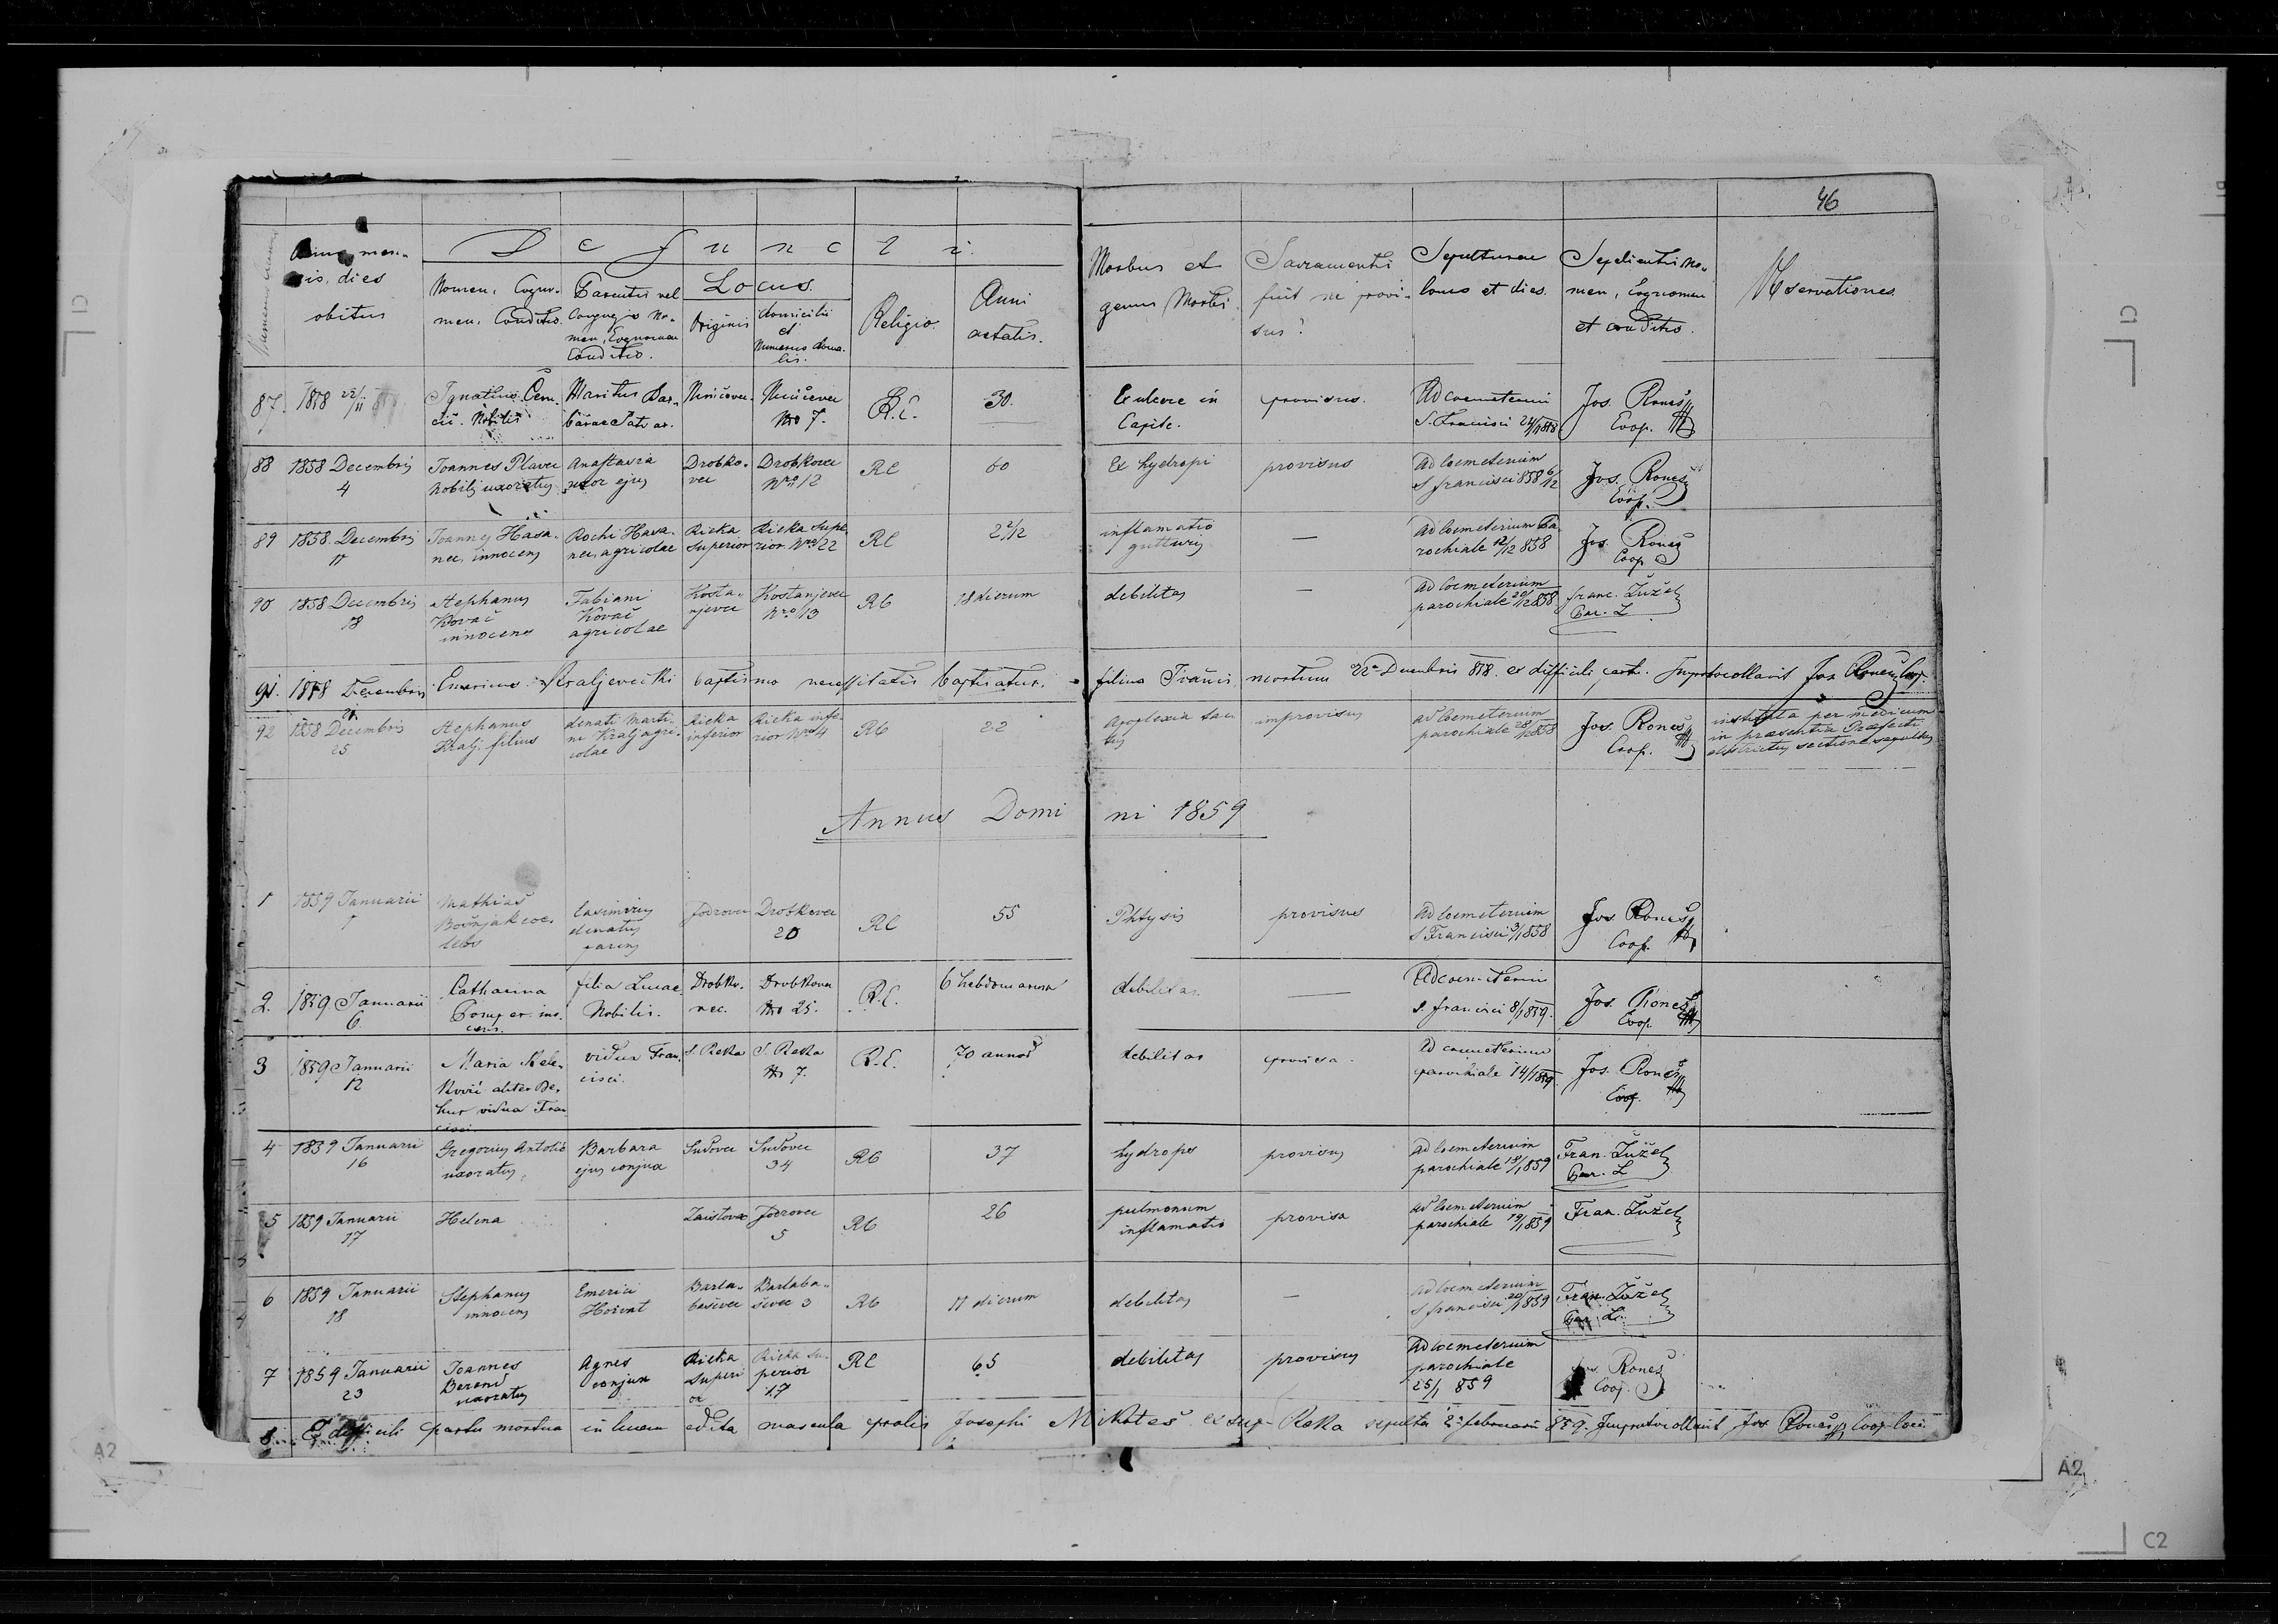 46
Numerus currens
Annus, men-
sis, dies
obitus
Defuncti.
Nomen, Cogno-
men, Conditio.
Parentis vel
Conjugis No-
men, Cognomen
Conditio.
Locus.
Originis
domicilii
et
Numerus domu-
lis.
Religio.
Anni
aetatis.
Morbus et
genus Mortis.
Sacramentis
fuit ne provi-
sus?
Sepulturae
locus et dies.
Sepelientis no-
men, Cognomen
et conditio.
Observationes
87. 1858 22/11
Ignatius
Nobilis
Maritus Bar-
barae
Miničevec
Miničevec
Nro 7.
R.C.
30.
Ex ulcere in
Capite.
provisus.
Ad coemeterium
S. Francisci 24/11 858
Jos. Roneš
Coop.
88 1858 Decembris
4
Joannes Plavec
Nobilis uxoratus
Anastasia
uxor ejus
Drobko-
vec
Drobkovec
Nro 12
RC
60
Ex hydropi
provisus
ad Coemeterium
S francisci 858 6/12
Jos. Roneš
Coop.
89 1858 Decembris
11
Joannes Hava-
nec, innocens
Rochi Hava-
nec, agricolae
Rieka
Superior
Rieka Supe
rior Nro 22
RC
2 2/12
inflamatio
gutturis
—
ad Coemeterium Pa-
rochiale 12/12 858
Jos. Roneš
Coop
90 1858 Decembris
18
Stephanus
Kovač
innocens
Fabiani
Kovač
agricolae
Kosta-
njevec
Kostanjevec
Nro 13
RC
18 dierum
debilitas
—
ad Coemeterium
parochiale 20/12 858
franc. Žužel
Par. L
91. 1858 Decembris
21
Emericus Kraljevečki baptismo necessitatis baptisatus. filius Francisci mortuus 22a Decembris 858. ex difficili partu. Improtocollavit Jos Roneš Coop.
92 1858 Decembris
25
Stephanus
Kralj filius
denati Marti-
ni Kralj agri-
colae
Rieka
inferior
Rieka infe-
rior Nro 4
RC
22
Apoplexia
improvisus
ad Coemeterium
parochiale 28/12 858
Jos. Roneš
Coop.
instituta per medicum
in praesentia Praefecti
districtus sectione sepultus
Annus Domini 1859
1 1859 Januarii
1
Mathias
Bošnjak coe-
lebs
Casimirus
denatus
parens
Jodrovec
Drobkovec
20
RC
55
Phtysis
provisus
ad Coemeterium
S Francisci 3/1 858
Jos Roneš
Coop.
2. 1859 Januarii
6.
Catharina
Pomper inno-
cens.
filia Lucae
Nobilis.
Drobko-
vec.
Drobkovec
Nro 25.
R.C.
6 hebdomarum
debilitas.
—
Ad coemeterium
S. francisci 8/1 859.
Jos. Roneš
Coop.
3 1859 Januarii
12
Maria Kele-
ković aliter Be-
hur vidua Fran-
cisci.
vidua Fran-
cisci.
S. Reka
S. Reka
Nro 7.
R.C.
70 annos
debilitas
provisa.
Ad coemeterium
parochiale 14/1 859
Jos. Roneš
Coop.
4 1859 Januarii
16
Gregorius Antolić
uxoratus,
Barbara
ejus conjux
Sudovec
Sudovec
34
RC
37
hydrops
provisus
ad Coemeterium
parochiale 18/1 859
Fran. Žužel
Par. L
5 1859 Januarii
17
Helena
Zaistovec
Jodrovec
5
RC
26
pulmonum
inflamatio
provisa
ad Coemeterium
parochiale 19/1 859
Fran. Žužel
6 1859 Januarii
18
Stephanus
innocens
Emerici
Horvat
Barla-
baševec
Barlaba-
ševec 3
RC
11 dierum
debilitas
—
ad Coemeterium
S francisci 20/1 859
Fran. Žužel
Par. L.
7 1859 Januarii
23
Joannes
Berend
uxoratus
Agnes
conjux
Rieka
Superi
or
Rieka Su-
perior
17
RC
65
debilitas
provisus
ad Coemeterium
parochiale
25/1 859
Jos. Roneš
Coop.
8. E difficili partu mortua in lucem edita mascula prolis Josephi Mikoteš ex sup. Reka sepulta 2a februarii 859. Improtocollavit Jos Roneš Coop. loci